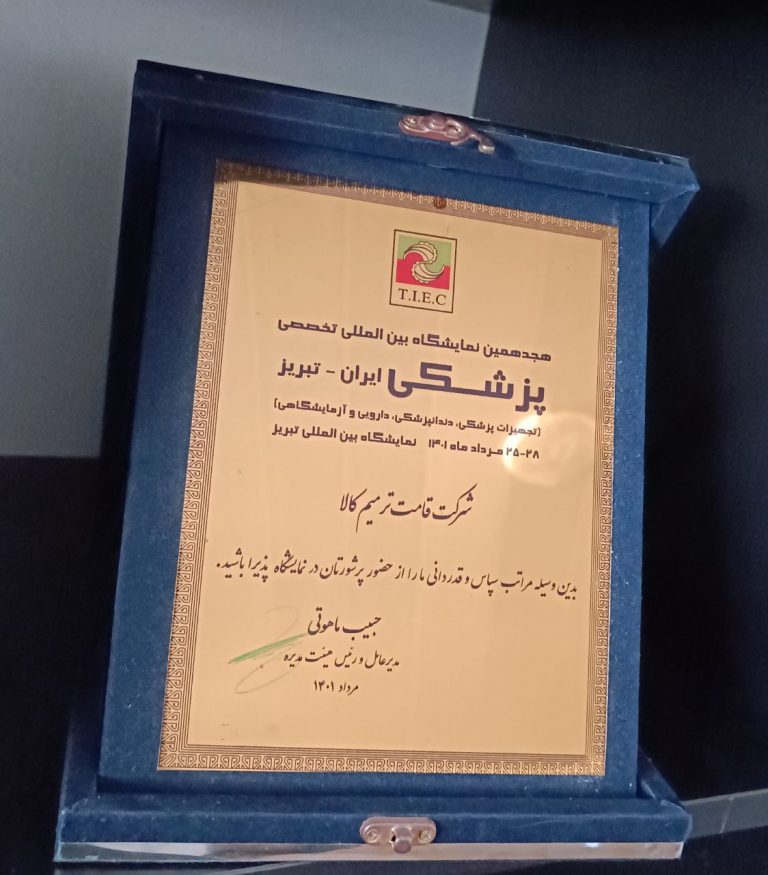 T.I.E.C
هجدهمین نمایشگاه بین المللی تخصصی
پزشکی ایران - تبریز
(تجهیزات پزشکی، دندانپزشکی، دارویی و آزمایشگاهی)
۲۵-۲۸ مرداد ماه ۱۴۰۱ نمایشگاه بین المللی تبریز
شرکت قامت ترمیم کالا
بدین وسیله مراتب سپاس و قدردانی ما را از حضور پرشورتان در نمایشگاه پذیرا باشید.
حبیب ماهوتی
مدیرعامل و رئیس هیئت مدیره
مرداد ۱۴۰۱